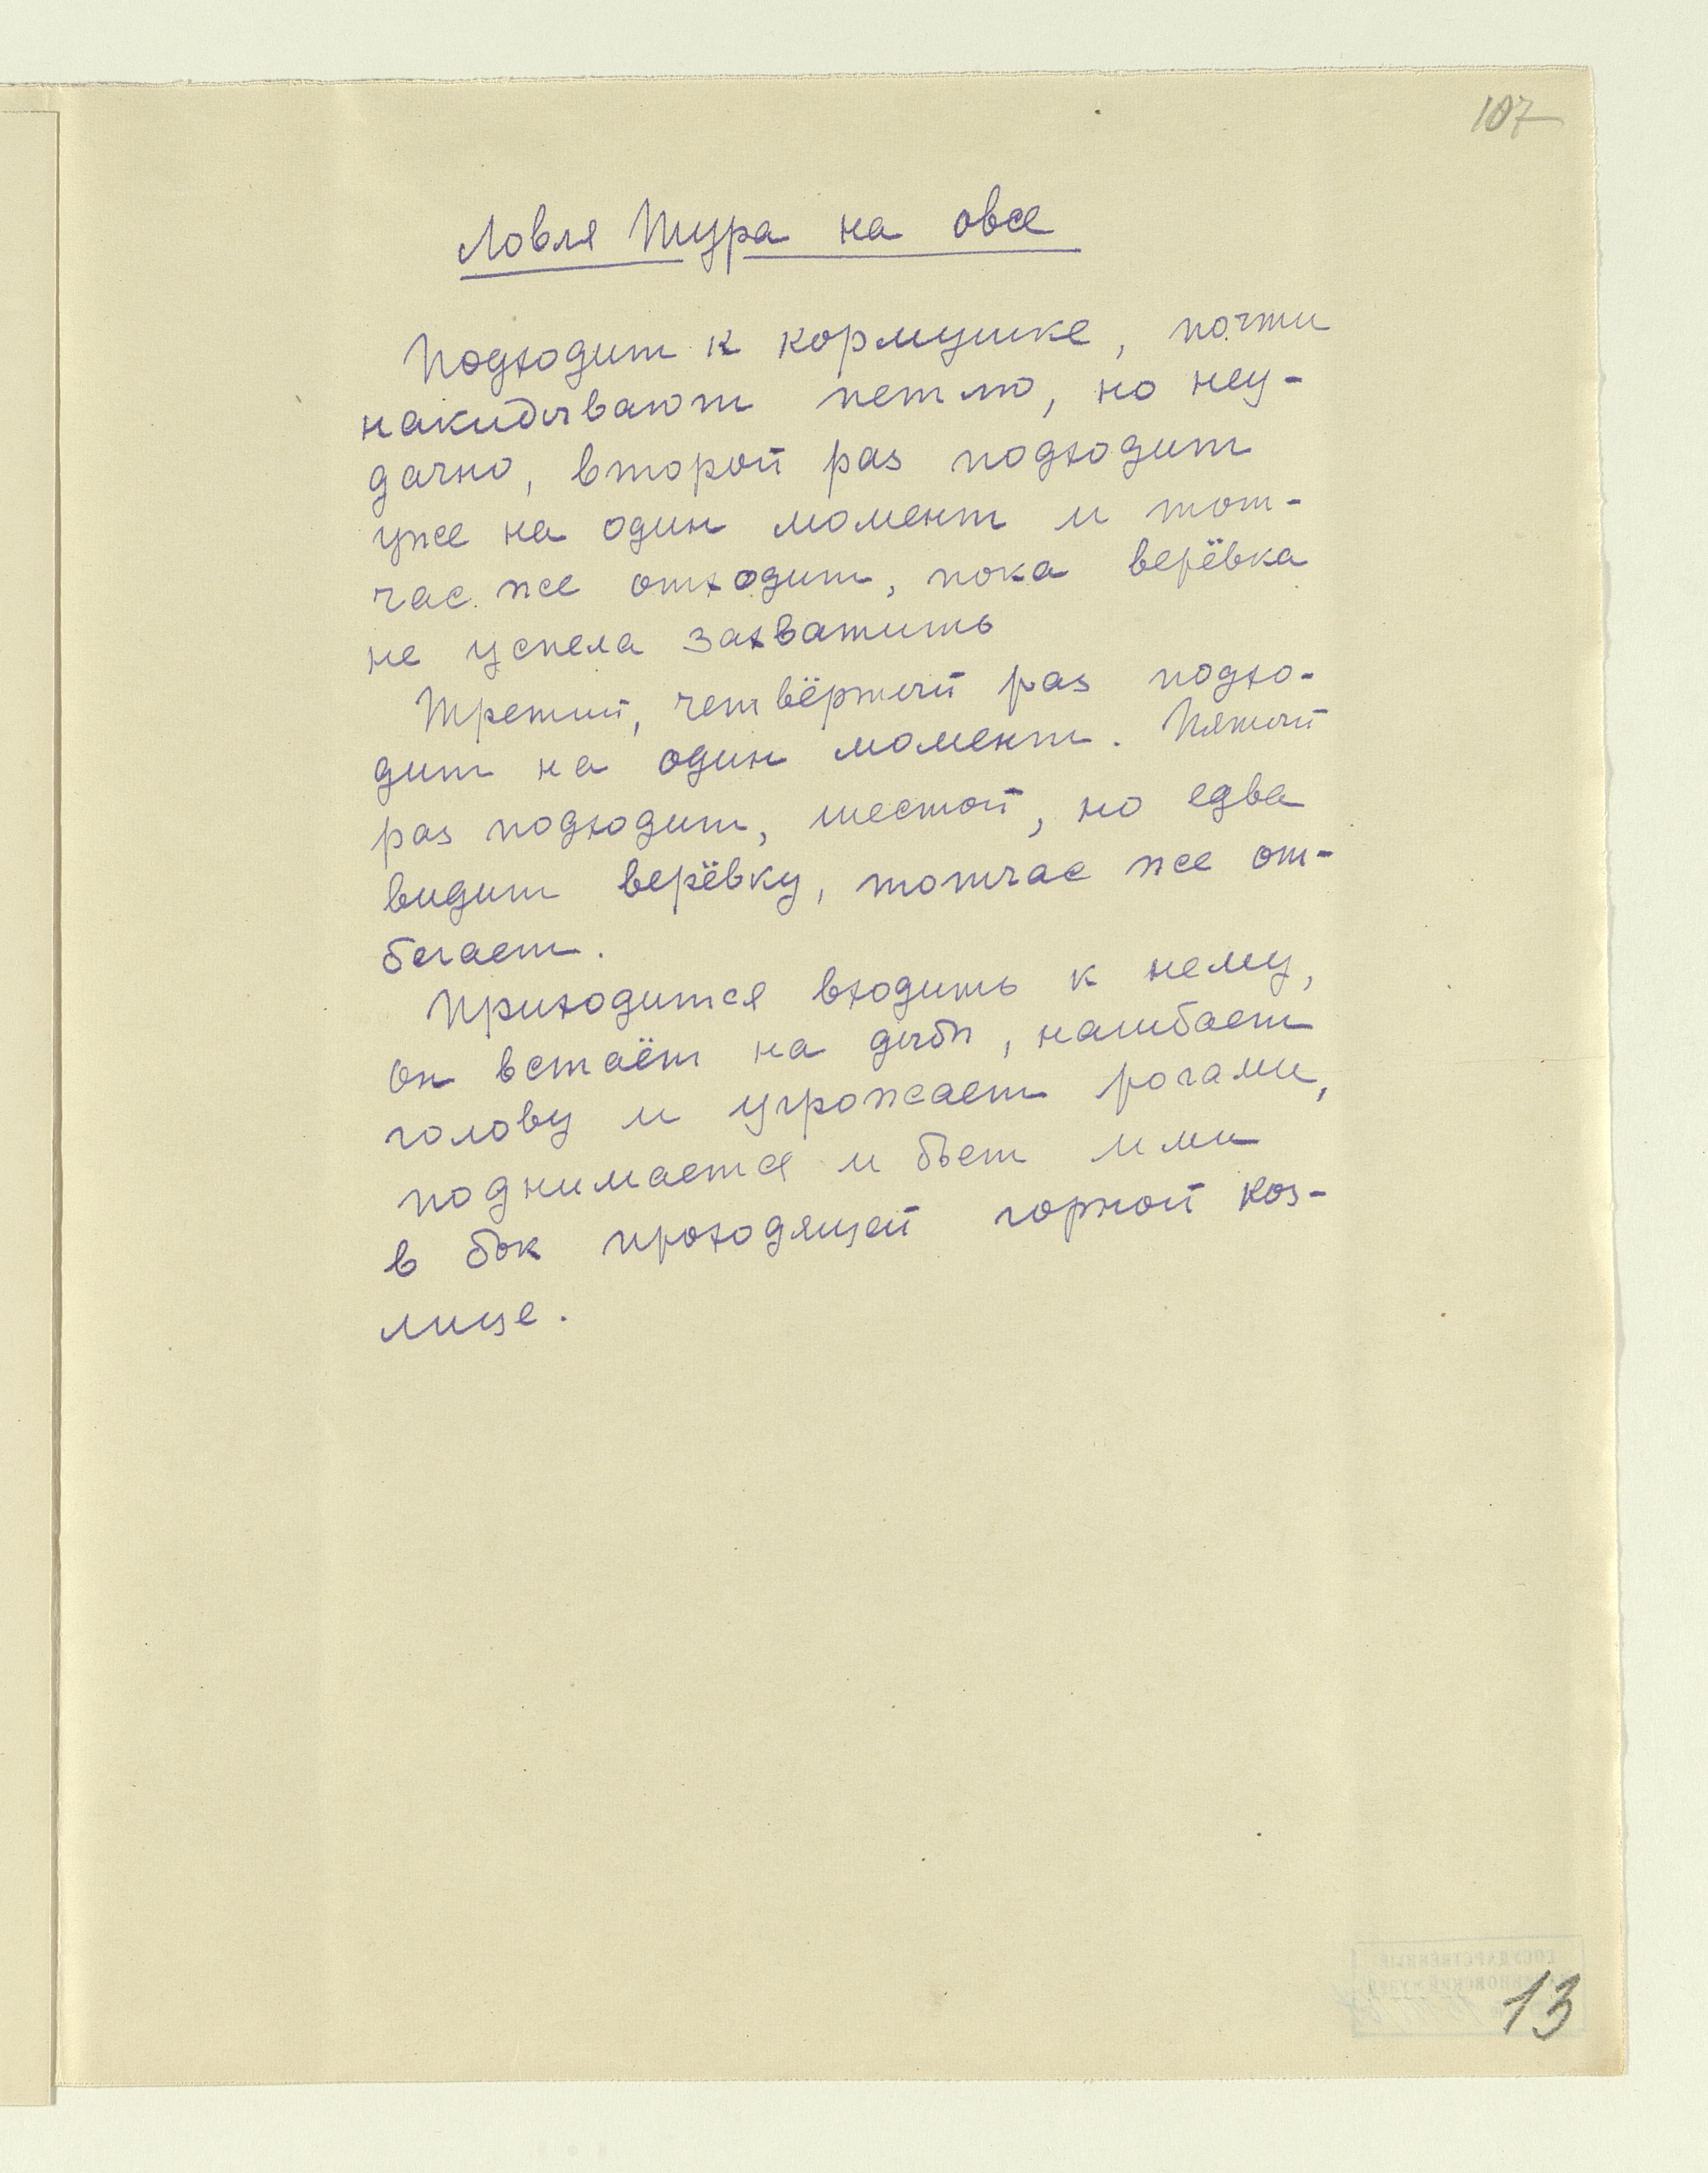 107
Ловля Тура на овсе
Подходит к кормушке, почти
накидывают петлю, но неу-
дачно, второй раз подходит
уже на один момент и тот-
час же отходит, пока верёвка
не успела захватить
Третий, четвёртый раз подхо-
дит на один момент. Пятый
раз подходит, шестой, но едва
видит верёвку, тотчас же от-
бегает.
Приходится входить к нему,
он встаёт на дыбы, нагибает
голову и угрожает рогами,
поднимается и бьет ими
в бок проходящей горной коз-
лице.
ГОСУДАРСТВЕННЫЙ
13